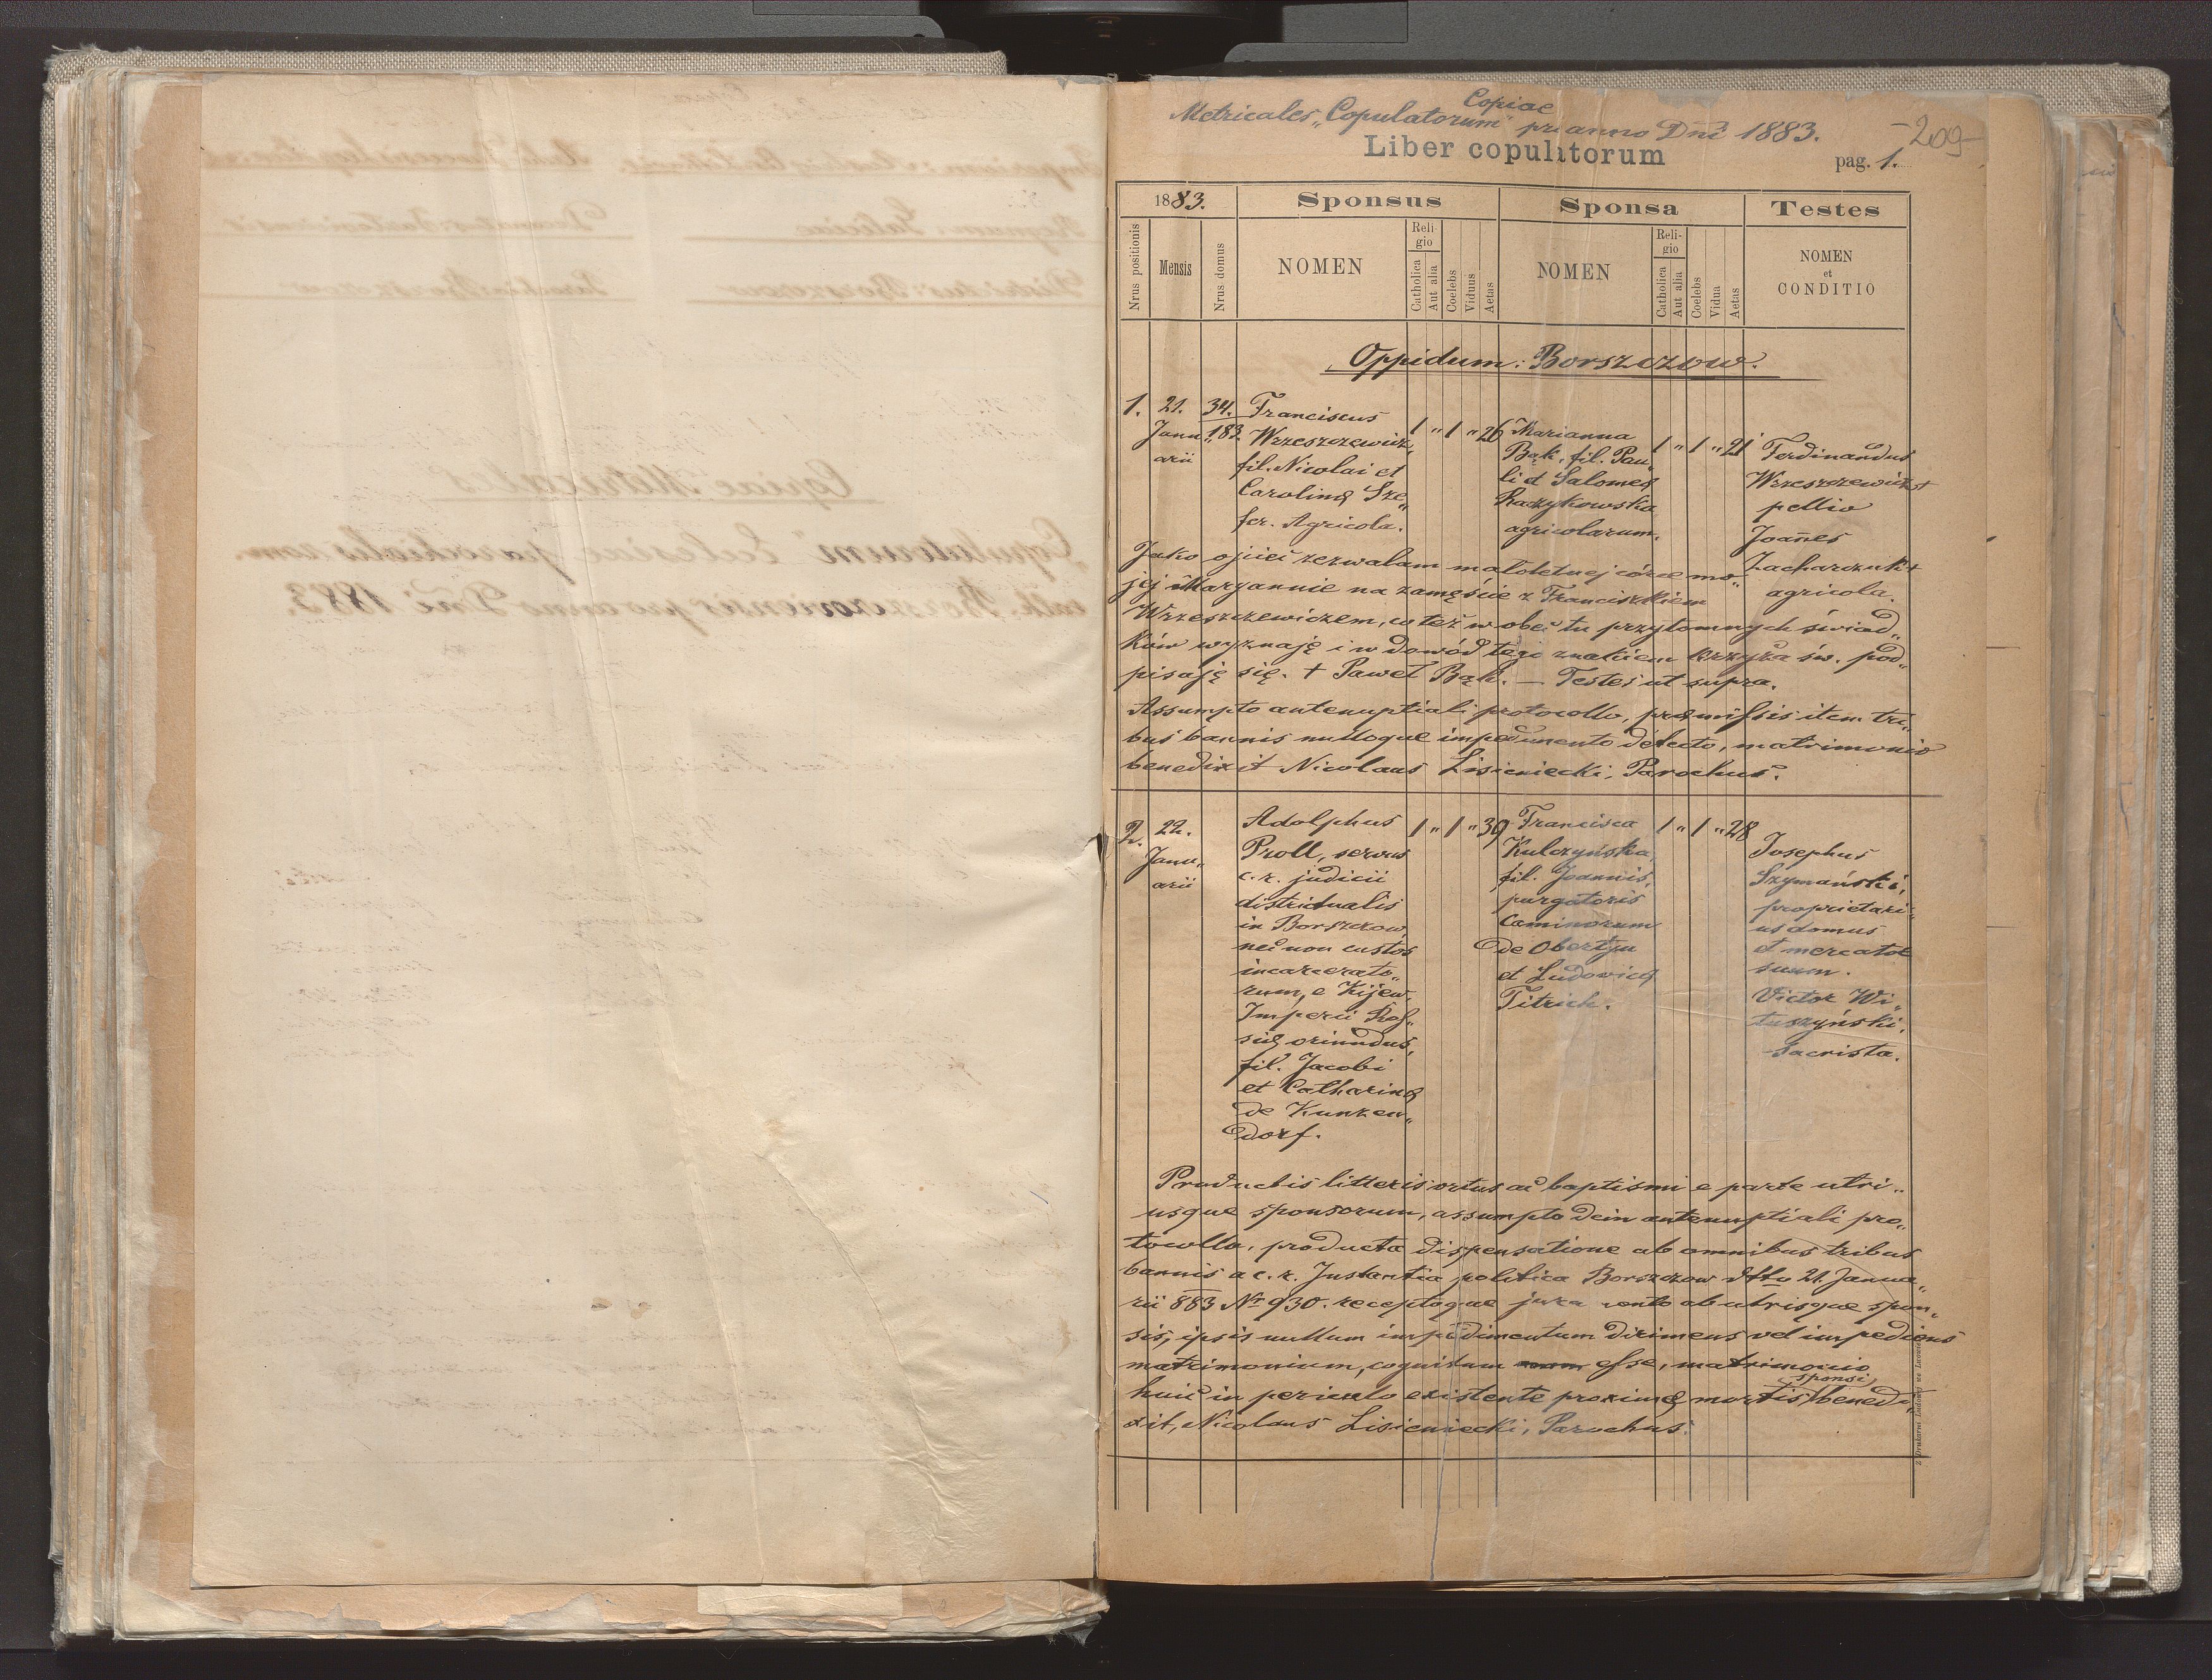 Copiae
Metricales „Copulatorum" pr anno Dni 1883.
-209-
Liber copulatorum
pag. 1.
1883.
Sponsus
Sponsa
Testes
Nrus positionis
Mensis
Nrus domus
NOMEN
Religio
Catholica
Aut alia
Coelebs
Viduus
Aetas
NOMEN
Religio
Catholica
Aut alia
Coelebs
Vidua
Aetas
NOMEN
et
CONDITIO
Oppidum: Borszczow.
1.
21.
Janu„
arii
34.
183.
Franciscus
Wrzeszczewicz,
fil. Nicolai et
Carolinę Sze„
fer. Agricola.
1 „ 1 „ 26
Marianna
Bąk, fil. Pau„
li et Salomeę
Raczykowska
agricolarum.
1 „ 1 „ 21
Ferdinandus
Wrzeszczewicz +
pellio
Joañes
Zacharczuk +
agricola.
Jako ojciec zezwalam małoletnej córce mo„
jej Maryannie na zamęście z Franciszkiem
Wrzeszczewiczem, co też w obec tu przytomnych świad„
ków wyznaję i w dowód tego znakiem krzyża św. pod„
pisaję się. + Paweł Bąk. — Testes ut supra.
Assumpto antenuptiali protocollo, pręmissis item tri„
bus bannis nulloque impedimento detecto, matrimonio
benedixit Nicolaus Lisieniecki, Parochus.
2.
22.
Janu„
arii
Adolphus
Proll, servus
c. r. judicii
districtualis
in Borszczow,
nec non custos
incarcerato„
rum, e Kijew.
Imperii Ros„
się oriundus,
fil. Jacobi
et Catharinę
de Kunzen„
dorf.
1 „ 1 „ 39
Francisca
Kulczyńska,
fil. Joannis,
purgatoris
caminorum
de Obertyn
et Ludovicę
Titrich.
1 „ 1 „ 28
Josephus
Szymański,
proprietari„
us domus
et mercator
suum.
Victor Wi„
tuszyński,
sacrista.
Productis litteris ortus ac baptismi e parte utri„
usque sponsorum, assumpto dein antenuptiali pro„
tocollo, producta dispensatione ab omnibus tribus
bannis a c. r. Instantia politica Borszczow dtto 21. Janua„
rii 883 Nr 930. receptoque jura mento ab utrisque spon„
sis, ipsis nullum impedimentum dirimens vel impediens
matrimonium, cognitum esse, matrimonio
sponsi,
huic in periculo existente proximę mortis benedi„
xit, Nicolaus Lisieniecki, Parochus.
Copiae Metricales
Copulatorum Ecclesiae parochialis rom.
cath. Borszczoviensis pro anno Dni 1883.